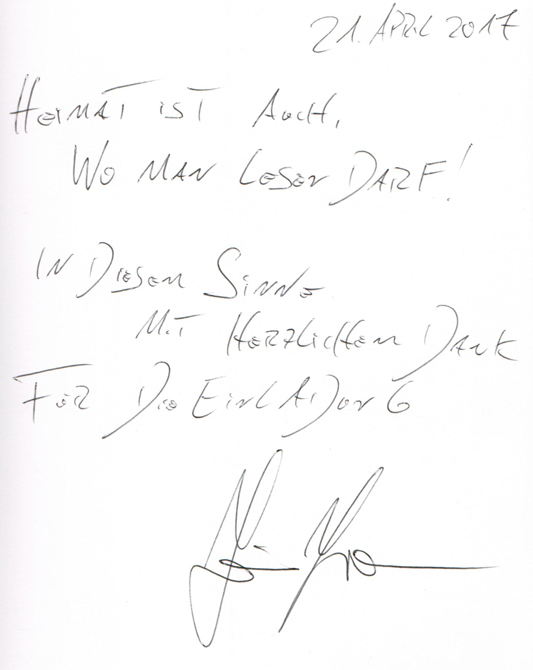 21. APRIL 2017
HEIMAT IST AUCH,
WO MAN LESEN DARF!
IN DIESEM SINNE
MIT HERZLICHEM DANK
FÜR DIE EINLADUNG